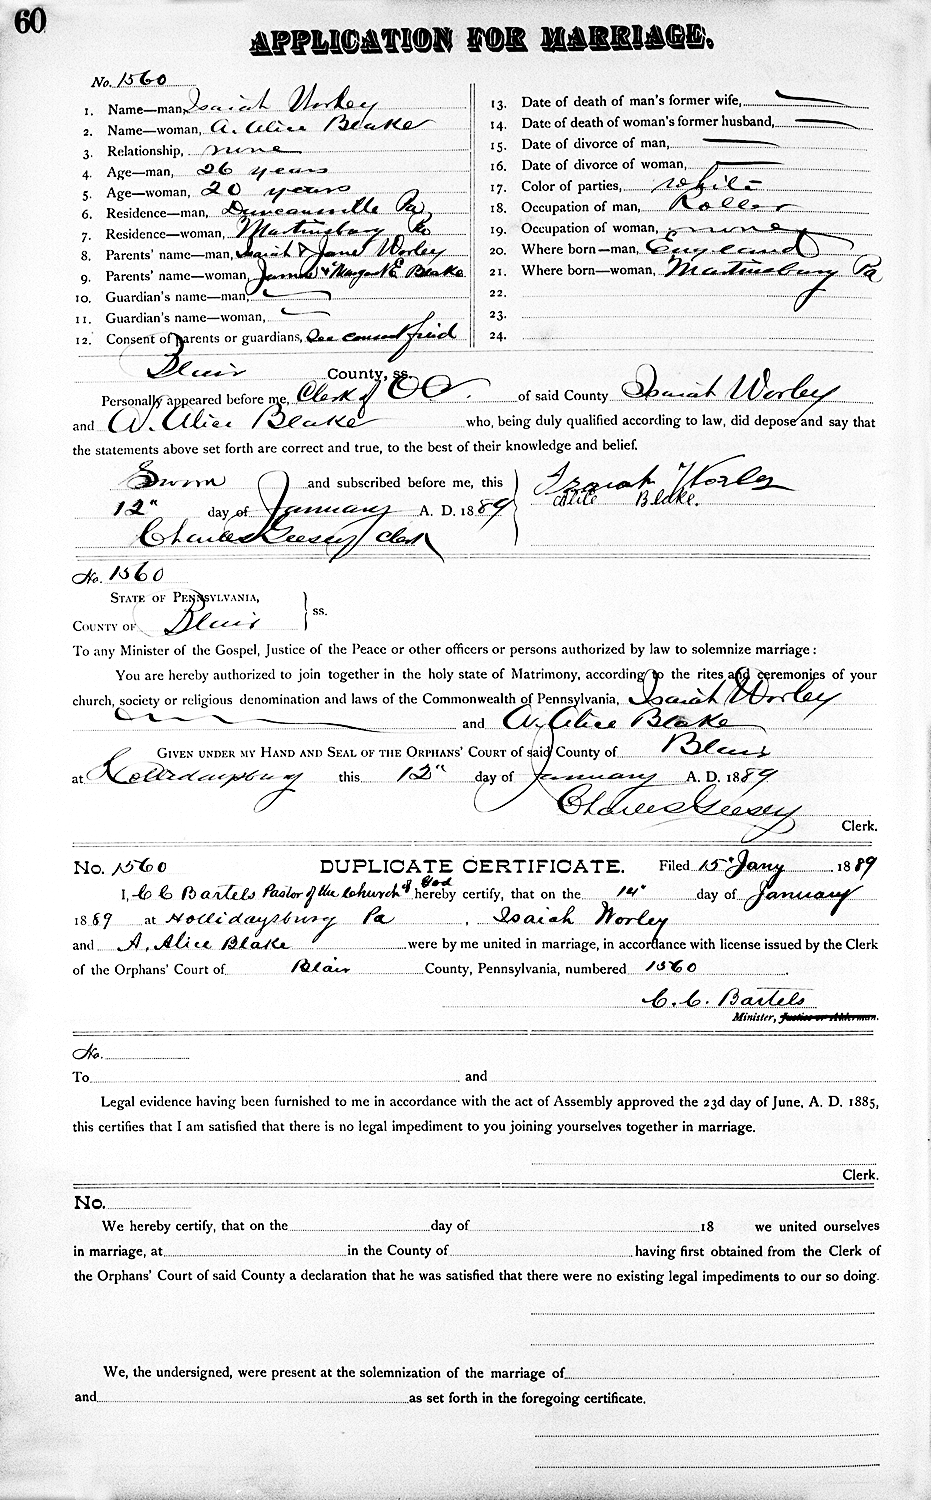 60
APPLICATION FOR MARRIAGE.
No. 1560
1. Name—man, Isaiah Worley
2. Name—woman, A. Alice Blake
3. Relationship, none
4. Age—man, 26 years
5. Age—woman, 20 years
6. Residence—man, Duncansville Pa
7. Residence—woman, Martinsburg Pa
8. Parents' name—man, Isaiah & Jane Worley
9. Parents' name—woman, James & Margaret E Blake
10. Guardian's name—man,
11. Guardian's name—woman,
12. Consent of parents or guardians, See consent filed
13. Date of death of man's former wife,
14. Date of death of woman's former husband,
15. Date of divorce of man,
16. Date of divorce of woman,
17. Color of parties, white
18. Occupation of man, Roller
19. Occupation of woman, none
20. Where born—man, England
21. Where born—woman, Martinsburg Pa
22.
23.
24.
Blair County, ss.
Personally appeared before me, Clerk of O C. of said County Isaiah Worley
and A. Alice Blake who, being duly qualified according to law, did depose and say that
the statements above set forth are correct and true, to the best of their knowledge and belief.
Sworn and subscribed before me, this
12" day of January A. D. 1889
Charles Geesey Clerk
Isaiah Worley
Alice Blake.
No. 1560
STATE OF PENNSYLVANIA,
COUNTY OF Blair ss.
To any Minister of the Gospel, Justice of the Peace or other officers or persons authorized by law to solemnize marriage:
You are hereby authorized to join together in the holy state of Matrimony, according to the rites and ceremonies of your
church, society or religious denomination and laws of the Commonwealth of Pennsylvania, Isaiah Worley
and A. Alice Blake
GIVEN UNDER MY HAND AND SEAL OF THE ORPHANS' COURT of said County of Blair
at Hollidaysburg this 12" day of January A. D. 1889
Charles Geesey
Clerk.
No. 1560 DUPLICATE CERTIFICATE. Filed 15" Jany 1889
I, C C Bartels Pastor of the Church of God hereby certify, that on the 14" day of January
1889 at Hollidaysburg Pa , Isaiah Worley
and A. Alice Blake were by me united in marriage, in accordance with license issued by the Clerk
of the Orphans' Court of Blair County, Pennsylvania, numbered 1560
C. C. Bartels
Minister, Justice or Alderman.
No.
To and
Legal evidence having been furnished to me in accordance with the act of Assembly approved the 23d day of June, A. D. 1885,
this certifies that I am satisfied that there is no legal impediment to you joining yourselves together in marriage.
Clerk.
No.
We hereby certify, that on the day of 18 we united ourselves
in marriage, at in the County of having first obtained from the Clerk of
the Orphans' Court of said County a declaration that he was satisfied that there were no existing legal impediments to our so doing.
We, the undersigned, were present at the solemnization of the marriage of
and as set forth in the foregoing certificate.